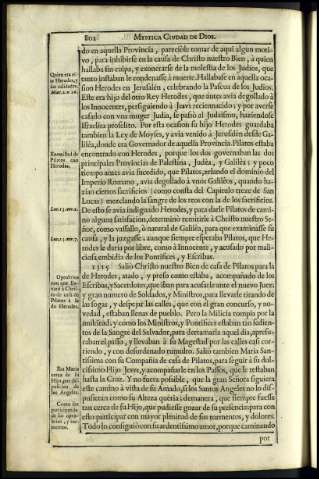 802 MYSTICA CIUDAD DE DIOS.
do en aquella Provincia, pareciòle tomar de aqui algun moti-
vo, para inhibirse en la causa de Christo nuestro Bien, à quien
hallaba sin culpa, y exonerarse de la molestia de los Judios, que
tanto instaban le condenasse à muerte. Hallabase en aquella oca-
sion Herodes en Jerusalèn, celebrando la Pascua de los Judios.
Este era hijo del otro Rey Herodes, que antes avia degollado à
los Innocentes, persiguiendo à recien nacido; y por averse
casado con vna muger Judia, se passò al Judaismo, haziendose
Israelita proselito. Por esta ocasion su hijo Herodes guardaba
tambien la Ley de Moyses, y avia venido à Jerusalèn desde Gali-
lèa, donde era Governador de aquella Provincia. Pilatos estaba
encontrado con Herodes, porque los dos governaban las dos
principales Provincias de Palestina, Judèa, y Galilèa; y poco
tiempo antes avia sucedido, que Pilatos, zelando el dominio del
Imperio Romano, avia degollado à vnos Galilèos, quando ha-
zian ciertos sacrificios; como consta del Capitulo treze de San
Lucas; mezclando la sangre de los reos con la de los sacrificios.
De esto se avia indignado Herodes, y para darle Pilatos de cami-
no alguna satisfacion, determinò remitirle à Christo nuestro Se-
ñor, como vassallo, ò natural de Galilèa, para que examinasse su
causa, y la juzgasse; aunque siempre esperaba Pilatos, que He-
rodes le daria por libre, como à Innocente, y acusado por ma-
licia, è embidia de los Pontifices, y Escribas.
1315 Saliò Christo nuestro Bien de casa de Pilatos para la
de Herodes, atado, y preso como estaba, acompañado de los
Escribas, y Sacerdotes, que iban para acusarle ante el nuevo Juez;
y gran numero de Soldados, y Ministros, para llevarle tirando de
las sogas, y despejar las calles, que con el gran concurso, y no-
vedad, estaban llenas de pueblo. Pero la Milicia rompia por la
multitud; y como los Ministros, y Pontifices estaban tan sedien-
tos de la Sangre del Salvador, para derramarla aquel dia, apresu-
raban el passo, y llevaban à su Magestad por las calles casi cor-
riendo, y con desordenado tumulto. Saliò tambien Maria San-
tissima con su Compañia de casa de Pilatos, para seguir à su dul-
cissimo Hijo, y acompañarle en los Passos, que le restaban
hasta la Cruz. Y no fuera possible, que la gran Señora siguiera
este camino à vista de su Amado, si los Santos Angeles no lo dis-
pusieran como su Alteza queria; de manera, que siempre fuesse
tan cerca de su Hijo, que pudiesse gozar de su presencia, para con
esto participar con mayor plenitud de sus tormentos, y dolores.
Todo lo consiguiò con su ardentissimo amor, porque caminando
por
Quien era es-
te Herodes,
Matt. 2. v. 16.
Enemistad de
Pilatos con
Herodes.
Luc. 13. v. 1.
Luc. 23. v. 7.
Iba Maria
cerca de su
Hijo por dis-
posicion de
los Angeles.